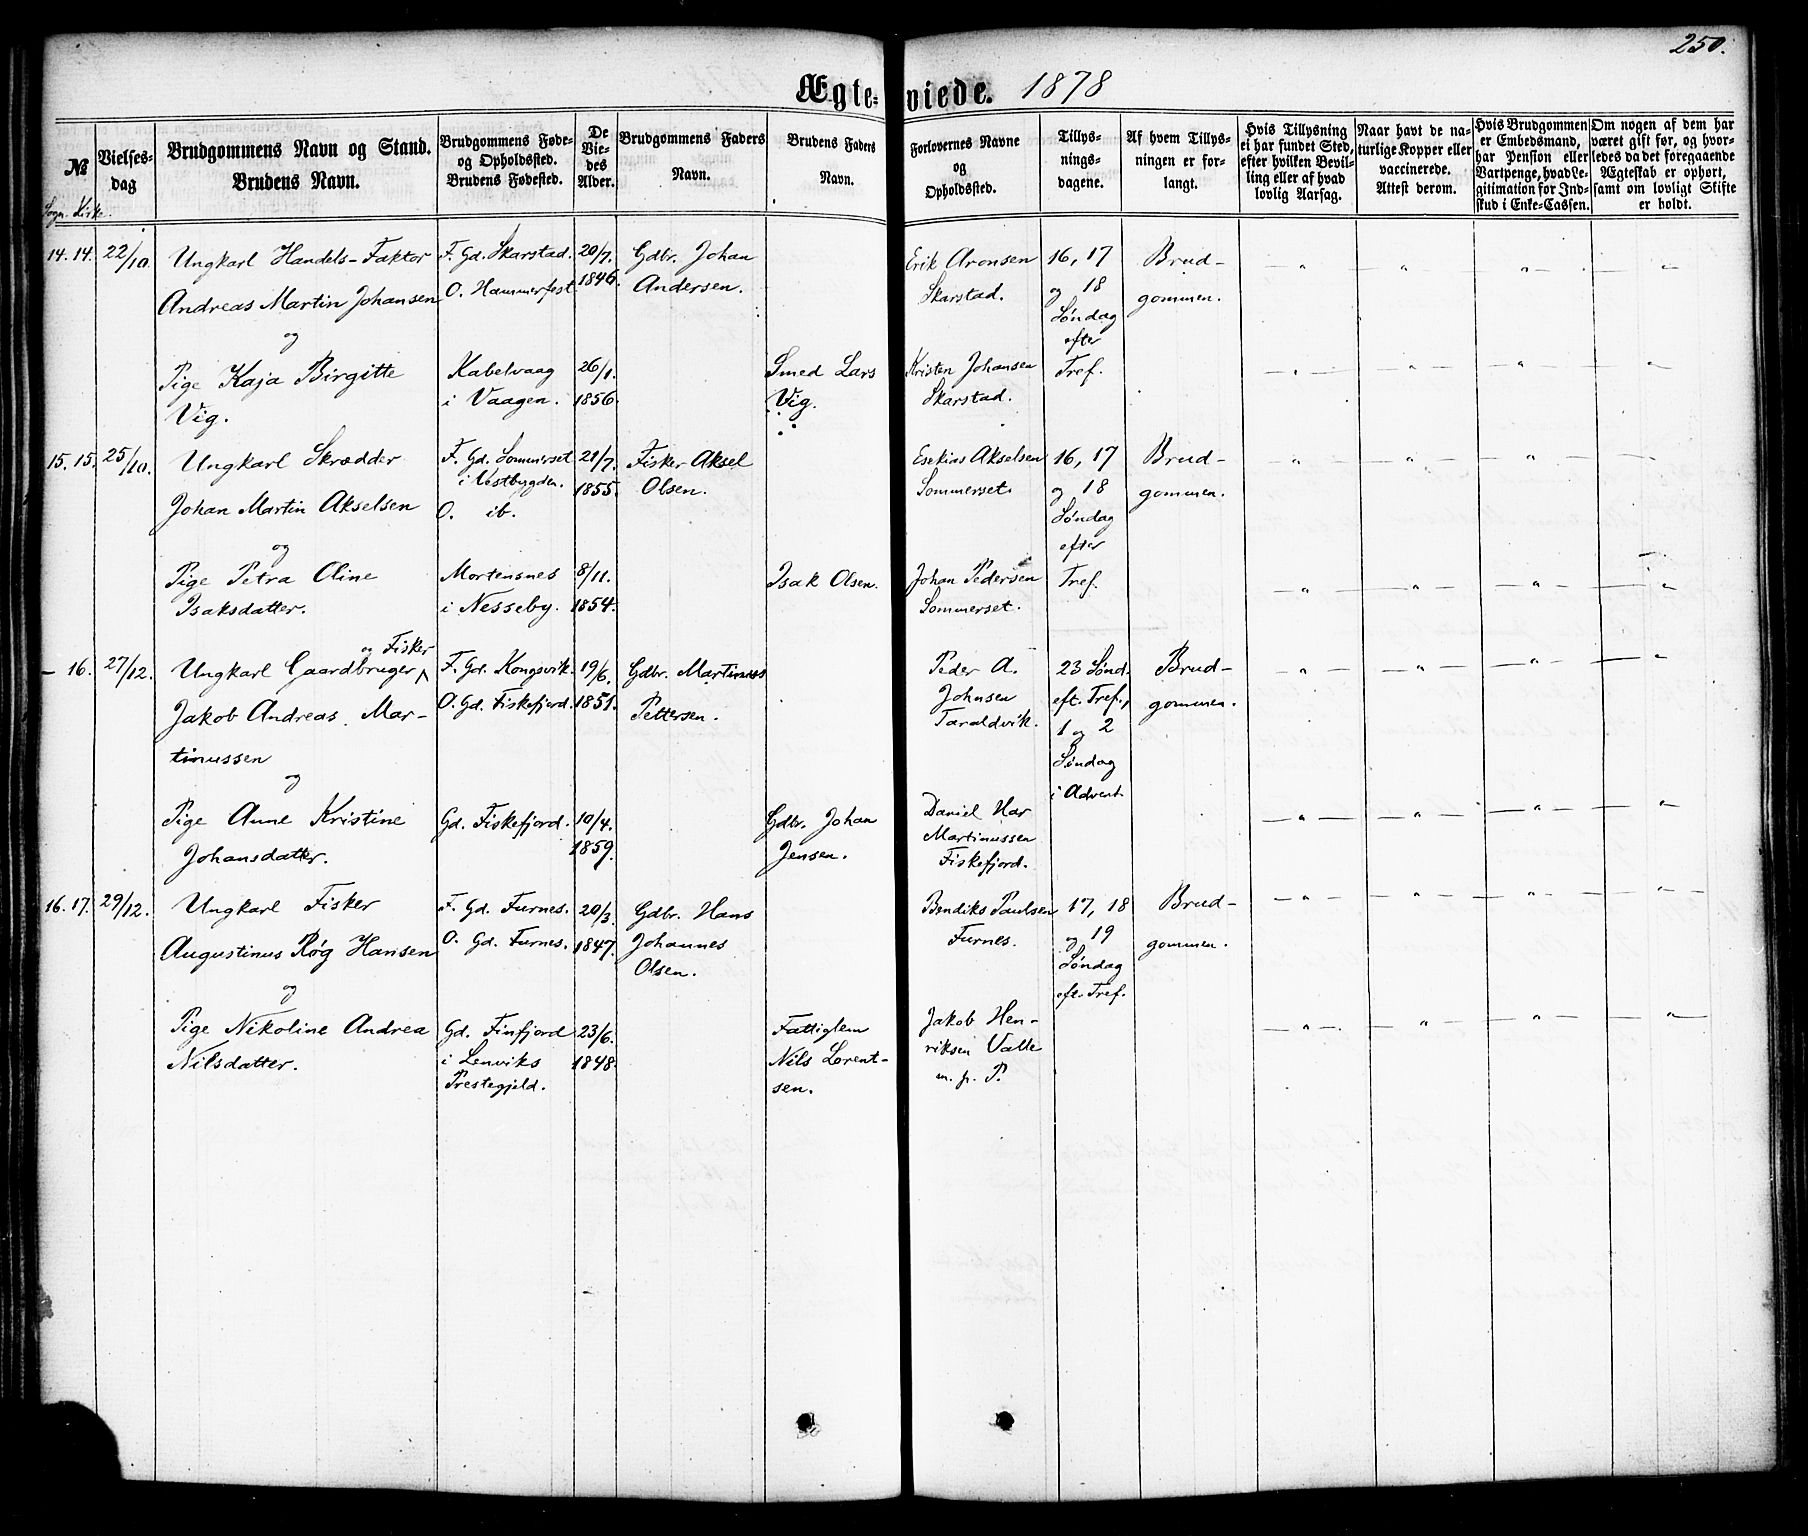 250.
Ægte-viede. 1878
№
Sogn. Kirke.
Vielses-
dag
Brudgommens Navn og Stand.
Brudens Navn.
Brudgommens Føde-
og Opholdssted.
Brudens Fødested.
De
Vie-
des
Alder.
Brudgommens Faders
Navn.
Brudens Faders
Navn.
Forlovernes Navne
og
Opholdssted.
Tillys-
nings-
dagene.
Af hvem Tillys-
ningen er for-
langt.
Hvis Tillysning
ei har fundet Sted,
efter hvilken Bevil-
ling eller af hvad
lovlig Aarsag.
Naar havt de na-
turlige Kopper eller
vaccinerede.
Attest derom.
Hvis Brudgommen
er Embedsmand,
har Pension eller
Vartpenge, hvad Le-
gitimation for Ind-
skud i Enke-Cassen.
Om nogen af dem har
været gift før, og hvor-
ledes da det foregaaende
Ægteskab er ophørt,
samt om lovligt Skifte
er holdt.
14. 14. 22/10.
Ungkarl Handels-Faktor
Andreas Martin Johansen
og
Pige Kaja Birgitte
Vig.
F. Gd. Skarstad.
O. Hammerfest
Kabelvaag
i Vaagen.
20/7.
1846.
26/1.
1856.
Gdbr. Johan
Andersen.
Smed Lars
Vig.
Erik Aronsen
Skarstad.
Kristen Johansen
Skarstad.
16, 17
og 18
Søndag
efter
Tref.
Brud-
gommen.
15. 15. 25/10.
Ungkarl Skrædder
Johan Martin Akselsen
og
Pige Petra Oline
Isaksdatter.
F. Gd. Sommerset
i Vestbygden.
O. ib.
Mortensnes
i Nesseby.
21/7.
1855.
8/11.
1854.
Fisker Aksel
Olsen.
Isak Olsen.
Esekias Akselsen
Sommerset.
Johan Pedersen
Sommerset.
16, 17
og 18
Søndag
efter
Tref.
Brud-
gommen.
— 16. 27/12.
og Fisker
Ungkarl Gaardbruger
Jakob Andreas Mar-
tinussen
og
Pige Anne Kristine
Johansdatter.
F. Gd. Kongsvik.
O. Gd. Fiskefjord.
Gd. Fiskefjord.
19/6.
1851.
10/4.
1859.
Gdbr. Martinus
Pettersen.
Gdbr. Johan
Jensen.
Peder A.
Johnsen
Taraldvik.
Daniel Har
Martinussen
Fiskefjord.
23 Sønd.
eft. Tref.,
1 og 2
Søndag
i Advent
Brud-
gommen.
16. 17. 29/12.
Ungkarl Fisker
Augustinus Røg Hansen
og
Pige Nikoline Andrea
Nilsdatter.
F. Gd. Furnes.
O. Gd. Furnes.
Gd. Finfjord
i Lenviks
Prestegjeld.
20/3.
1847.
23/6.
1848.
Gdbr. Hans
Johannes
Olsen.
Fattiglem
Nils Lorent-
sen.
Bendiks Paulsen
Furnes.
Jakob Hen-
riksen Valle
m. p. P.
17, 18
og 19
Søndag
eft. Tref.
Brud-
gommen.